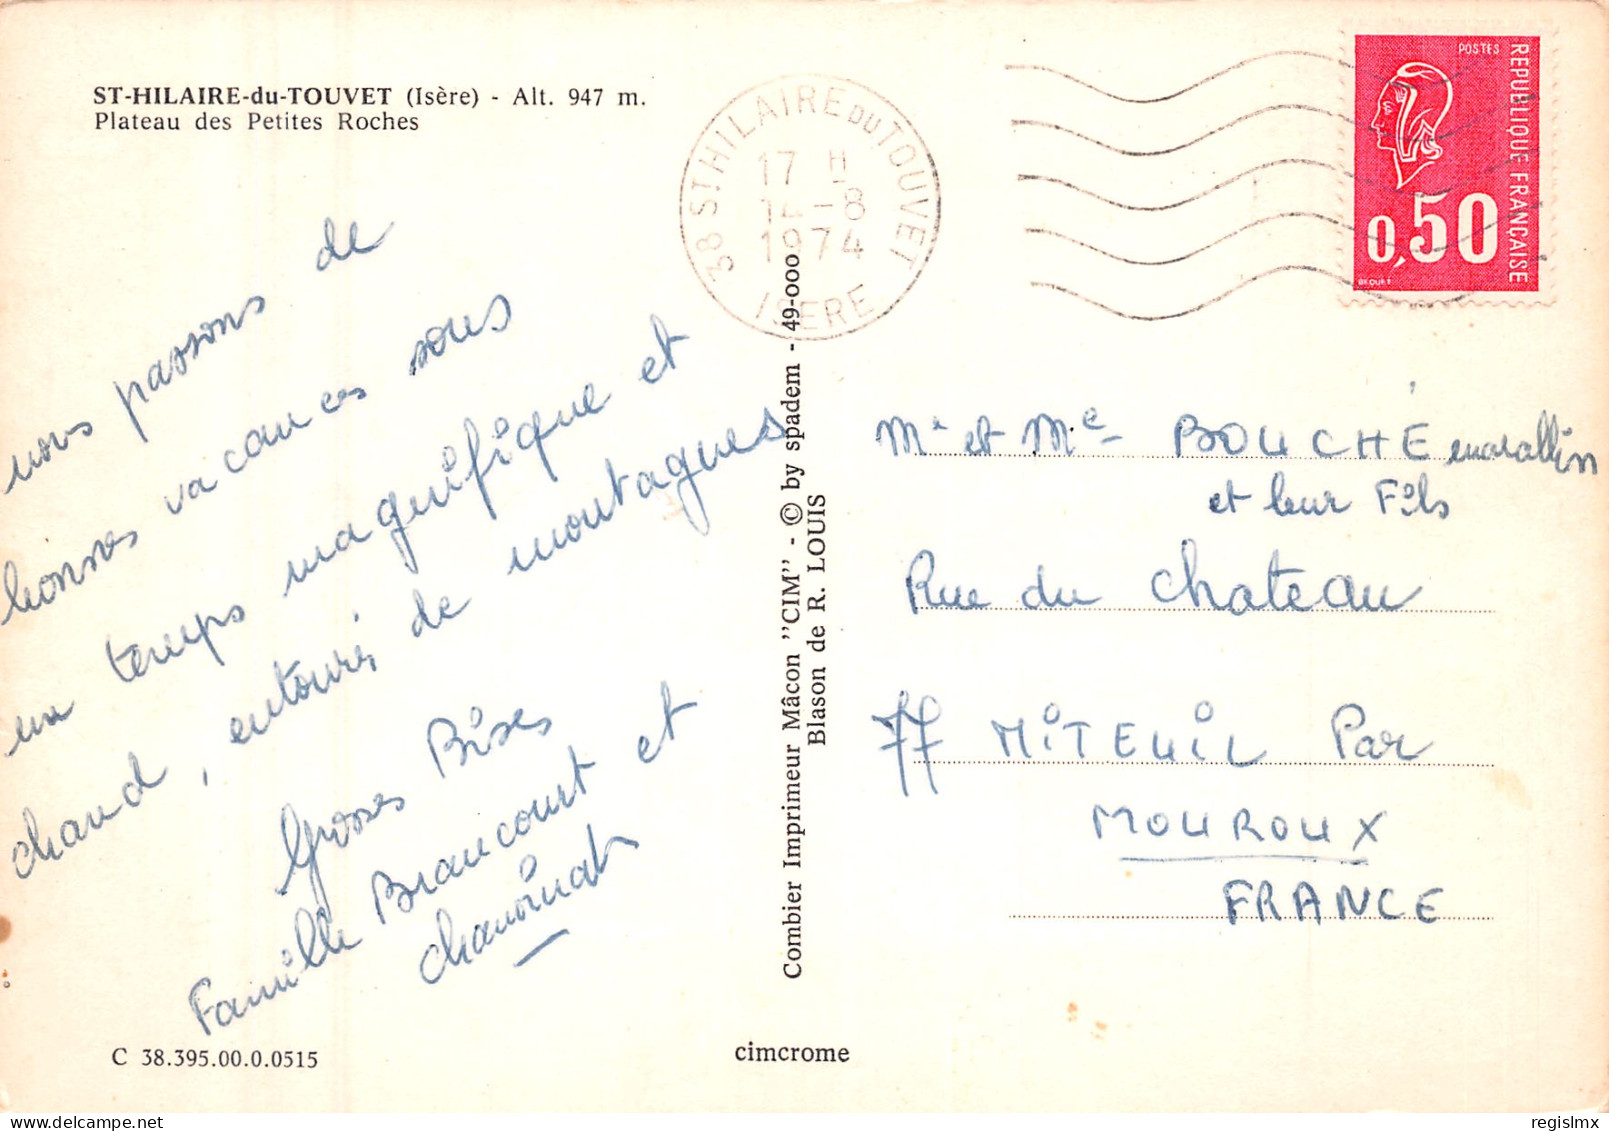 ST-HILAIRE-du-TOUVET (Isère) - Alt. 947 m.
Plateau des Petites Roches
38 ST HILAIRE DU TOUVET
17 H
14-8
1974
ISERE
POSTES
REPUBLIQUE FRANÇAISE
0,50
BEQUET
nous passons de
bonnes vacances sous
un temps magnifique et
chaud, entourés de montagnes
Grosses Bises
Famille Brancourt et
Chamoinat
Combier Imprimeur Mâcon "CIM" - © by spadem - 49-000
Blason de R. LOUIS
Mr et Me BOUCHÉ
et leur Fils
Rue du Chateau
77 MiTEUiL Par
MOUROUX
FRANCE
C 38.395.00.0.0515
cimcrome
regislmx